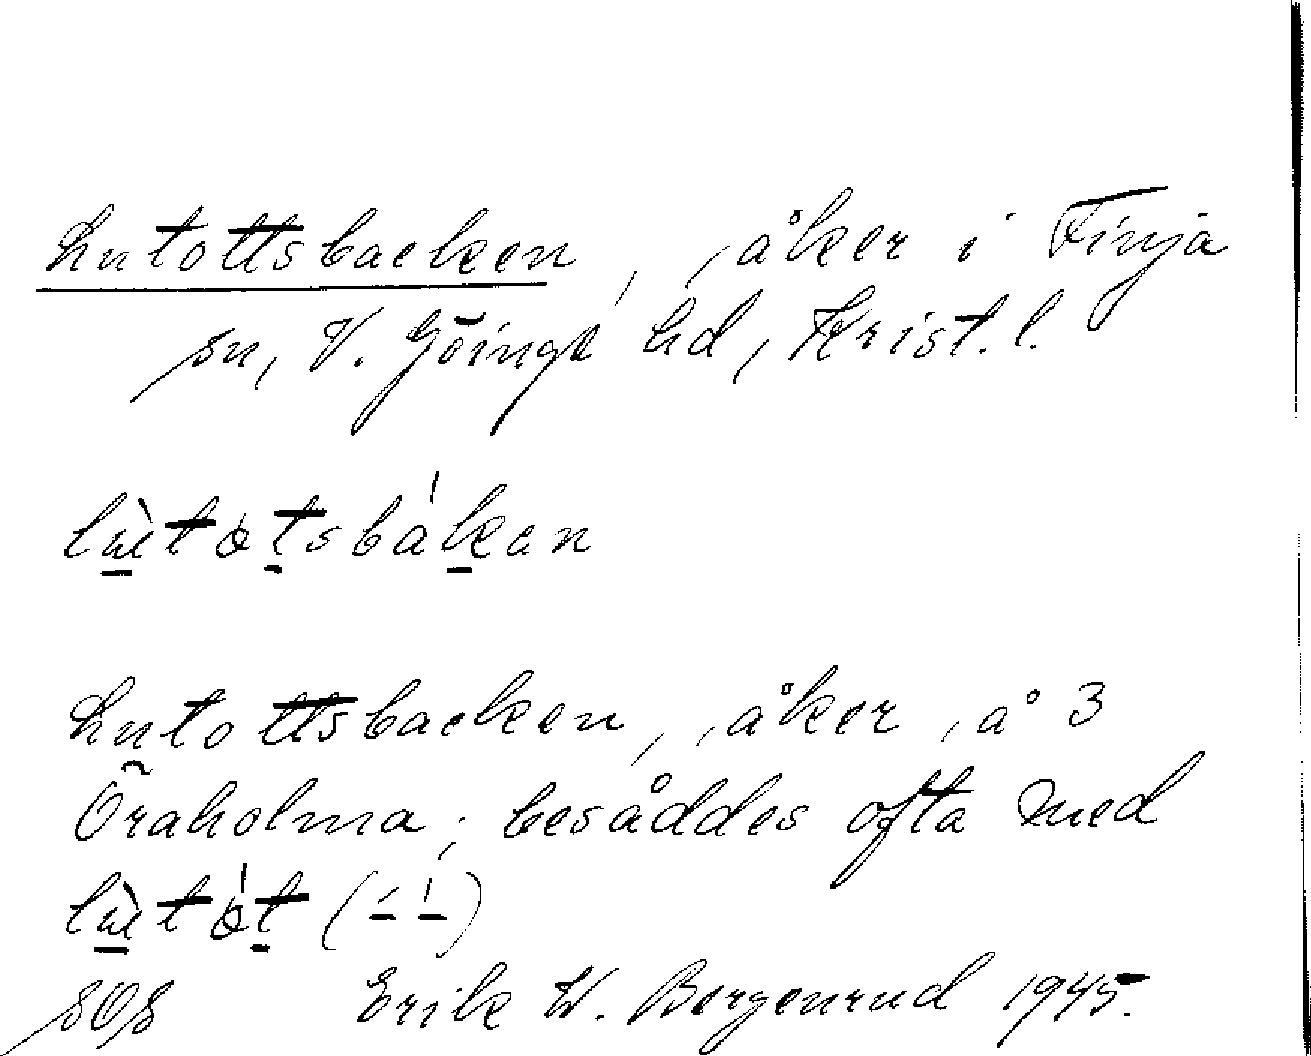 Lutottsbacken, åker i Finja
sn, V. Göinge hd, Krist. l.
Lutottsbacken, åker, å 3
Öraholma; besåddes ofta med
SOS Erik W. Bergenrud 1945.